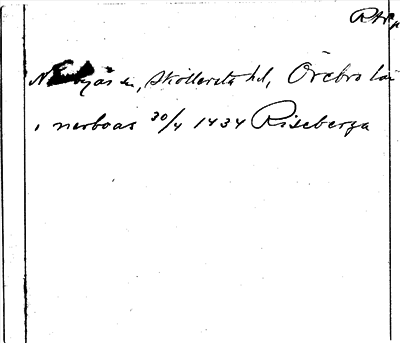 RAp
sn, Sköllersta hd, Örebro län
i nerboas 30/4 1434 Riseberga